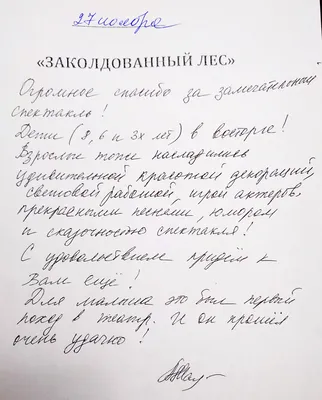 27 ноября
«ЗАКОЛДОВАННЫЙ ЛЕС»
Огромное спасибо за замечательный
спектакль!
Дети (8, 6 и 3х лет) в восторге!
Взрослые тоже насладились
удивительной красотой декораций,
световой работой, игрой актеров,
прекрасными песнями, юмором
и сказочностью спектакля!
С удовольствием придём к
Вам ещё!
Для малыша это был первый
поход в театр. И он прошёл
очень удачно!